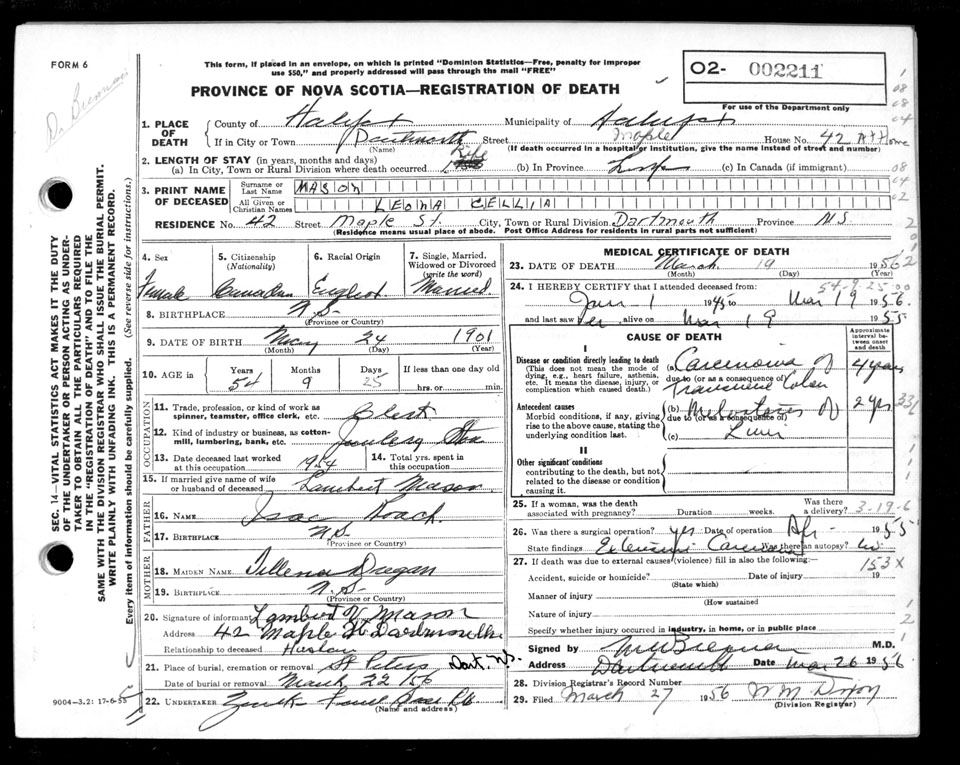 FORM 6
This form, if placed in an envelope, on which is printed "Dominion Statistics—Free, penalty for improper
use $50," and properly addressed will pass through the mail "FREE"
O2- 002211
PROVINCE OF NOVA SCOTIA—REGISTRATION OF DEATH
For use of the Department only
SEC. 14—VITAL STATISTICS ACT MAKES IT THE DUTY
OF THE UNDERTAKER OR PERSON ACTING AS UNDER-
TAKER TO OBTAIN ALL THE PARTICULARS REQUIRED
IN THE "REGISTRATION OF DEATH" AND TO FILE THE
SAME WITH THE DIVISION REGISTRAR WHO SHALL ISSUE THE BURIAL PERMIT.
WRITE PLAINLY WITH UNFADING INK. THIS IS A PERMANENT RECORD.
Every item of Information should be carefully supplied. (See reverse side for instructions.)
1. PLACE OF DEATH
County of Halifax Municipality of Halifax
If in City or Town Dartmouth Street Maple House No. 42 At Home
(Name) (If death occurred in a hospital or institution, give the name instead of street and number)
2. LENGTH OF STAY (in years, months and days)
(a) In City, Town or Rural Division where death occurred Life (b) In Province Life (c) In Canada (if immigrant)
3. PRINT NAME OF DECEASED
Surname or Last Name MASON
All Given or Christian Names LEONA CELLIA
RESIDENCE No. 42 Street Maple St. City, Town or Rural Division Dartmouth Province N.S.
(Residence means usual place of abode. Post Office Address for residents in rural parts not sufficient)
4. Sex Female
5. Citizenship (Nationality) Canadian
6. Racial Origin English
7. Single, Married, Widowed or Divorced (write the word) Married
8. BIRTHPLACE N.S.
(Province or Country)
9. DATE OF BIRTH May 24 1901
(Month) (Day) (Year)
10. AGE Years 54 Months 9 Days 25 If less than one day old hrs. or min.
OCCUPATION
11. Trade, profession, or kind of work as spinner, teamster, office clerk, etc. Clerk
12. Kind of industry or business, as cotton-mill, lumbering, bank, etc.
13. Date deceased last worked at this occupation 1954
14. Total yrs. spent in this occupation
15. If married give name of wife or husband of deceased Lambert Mason
FATHER
16. NAME Isac Roach
17. BIRTHPLACE N.S.
(Province or Country)
MOTHER
18. MAIDEN NAME
19. BIRTHPLACE N.S.
(Province or Country)
20. Signature of informant Lambert V Mason
Address 42 Maple St Dartmouth
Relationship to deceased
21. Place of burial, cremation or removal St Peters Dart. N.S.
Date of burial or removal March 22/56
22. UNDERTAKER
(Name and address)
9004—3.2: 17-6-55
MEDICAL CERTIFICATE OF DEATH
23. DATE OF DEATH March 19 1956
(Month) (Day) (Year)
54-9-25-00
24. I HEREBY CERTIFY that I attended deceased from:
Jan 1 1945 to Mar 19 1956
and last saw her alive on Mar 19 1955
CAUSE OF DEATH
Approximate interval between onset and death
I
Disease or condition directly leading to death
(This does not mean the mode of dying, e.g., heart failure, asthenia, etc. It means the disease, injury, or complication which caused death.)
(a) Carcinoma of 4 years
due to (or as a consequence of)
Transverse Colon
Antecedent causes
Morbid conditions, if any, giving rise to the above cause, stating the underlying condition last.
(b) Metastases of 2 yrs
due to (or as a consequence of)
(c) Liver
II
Other significant conditions
contributing to the death, but not related to the disease or condition causing it.
25. If a woman, was the death associated with pregnancy? Duration weeks. Was there a delivery? 3-19-6
26. Was there a surgical operation? yes Date of operation Apr 1955
State findings Extensive Carcinoma Was there an autopsy? no
27. If death was due to external causes (violence) fill in also the following:— 153X
Accident, suicide or homicide? Date of injury 19
(State which)
Manner of injury
(How sustained
Nature of injury
Specify whether injury occurred in industry, in home, or in public place
Signed by M.D.
Address Dartmouth Date Mar 26 1956
28. Division Registrar's Record Number
29. Filed March 27 1956
(Division Registrar)